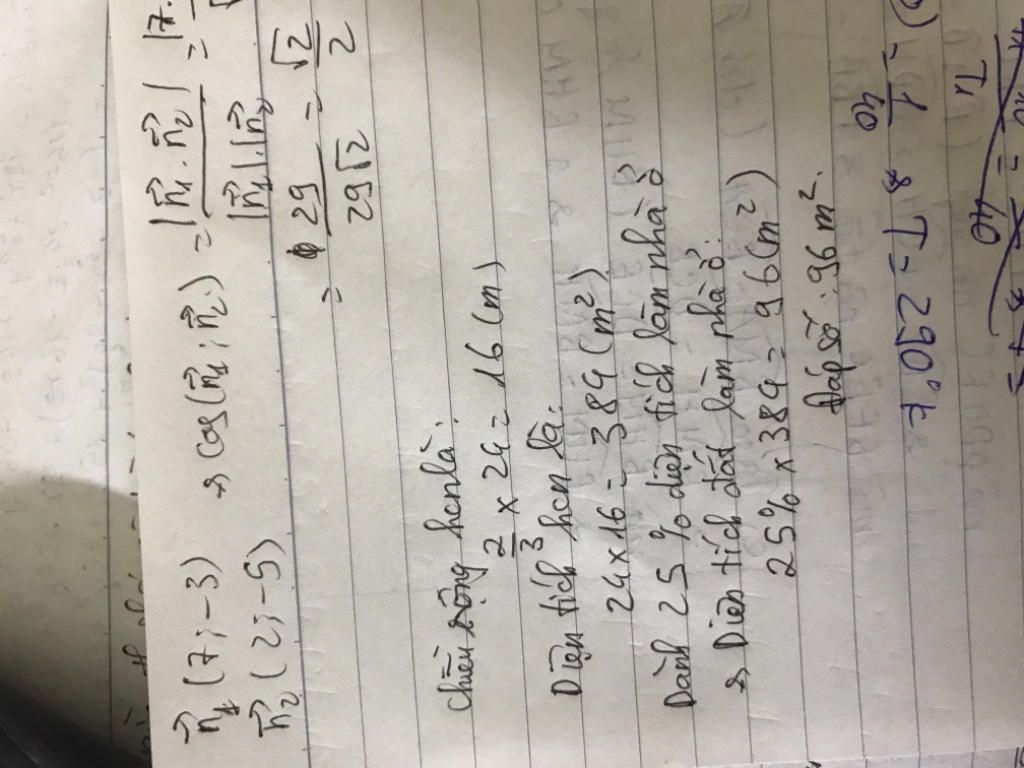 n⃗₁ (7; -3) → cos(n⃗₁; n⃗₂) = |n⃗₁ . n⃗₂| / |n⃗₁|.|n⃗₂| = |7.
n⃗₂ (2; -5)
= 29 / 29√2 = √2 / 2
Chiều rộng hcn là:
2/3 x 24 = 16 (m)
Diện tích hcn là:
24 x 16 = 384 (m²)
Dành 25 % diện tích làm nhà ở
→ Diện tích đất làm nhà ở:
25% x 384 = 96 (m²)
Đáp số: 96 m².
→ T = 290°k